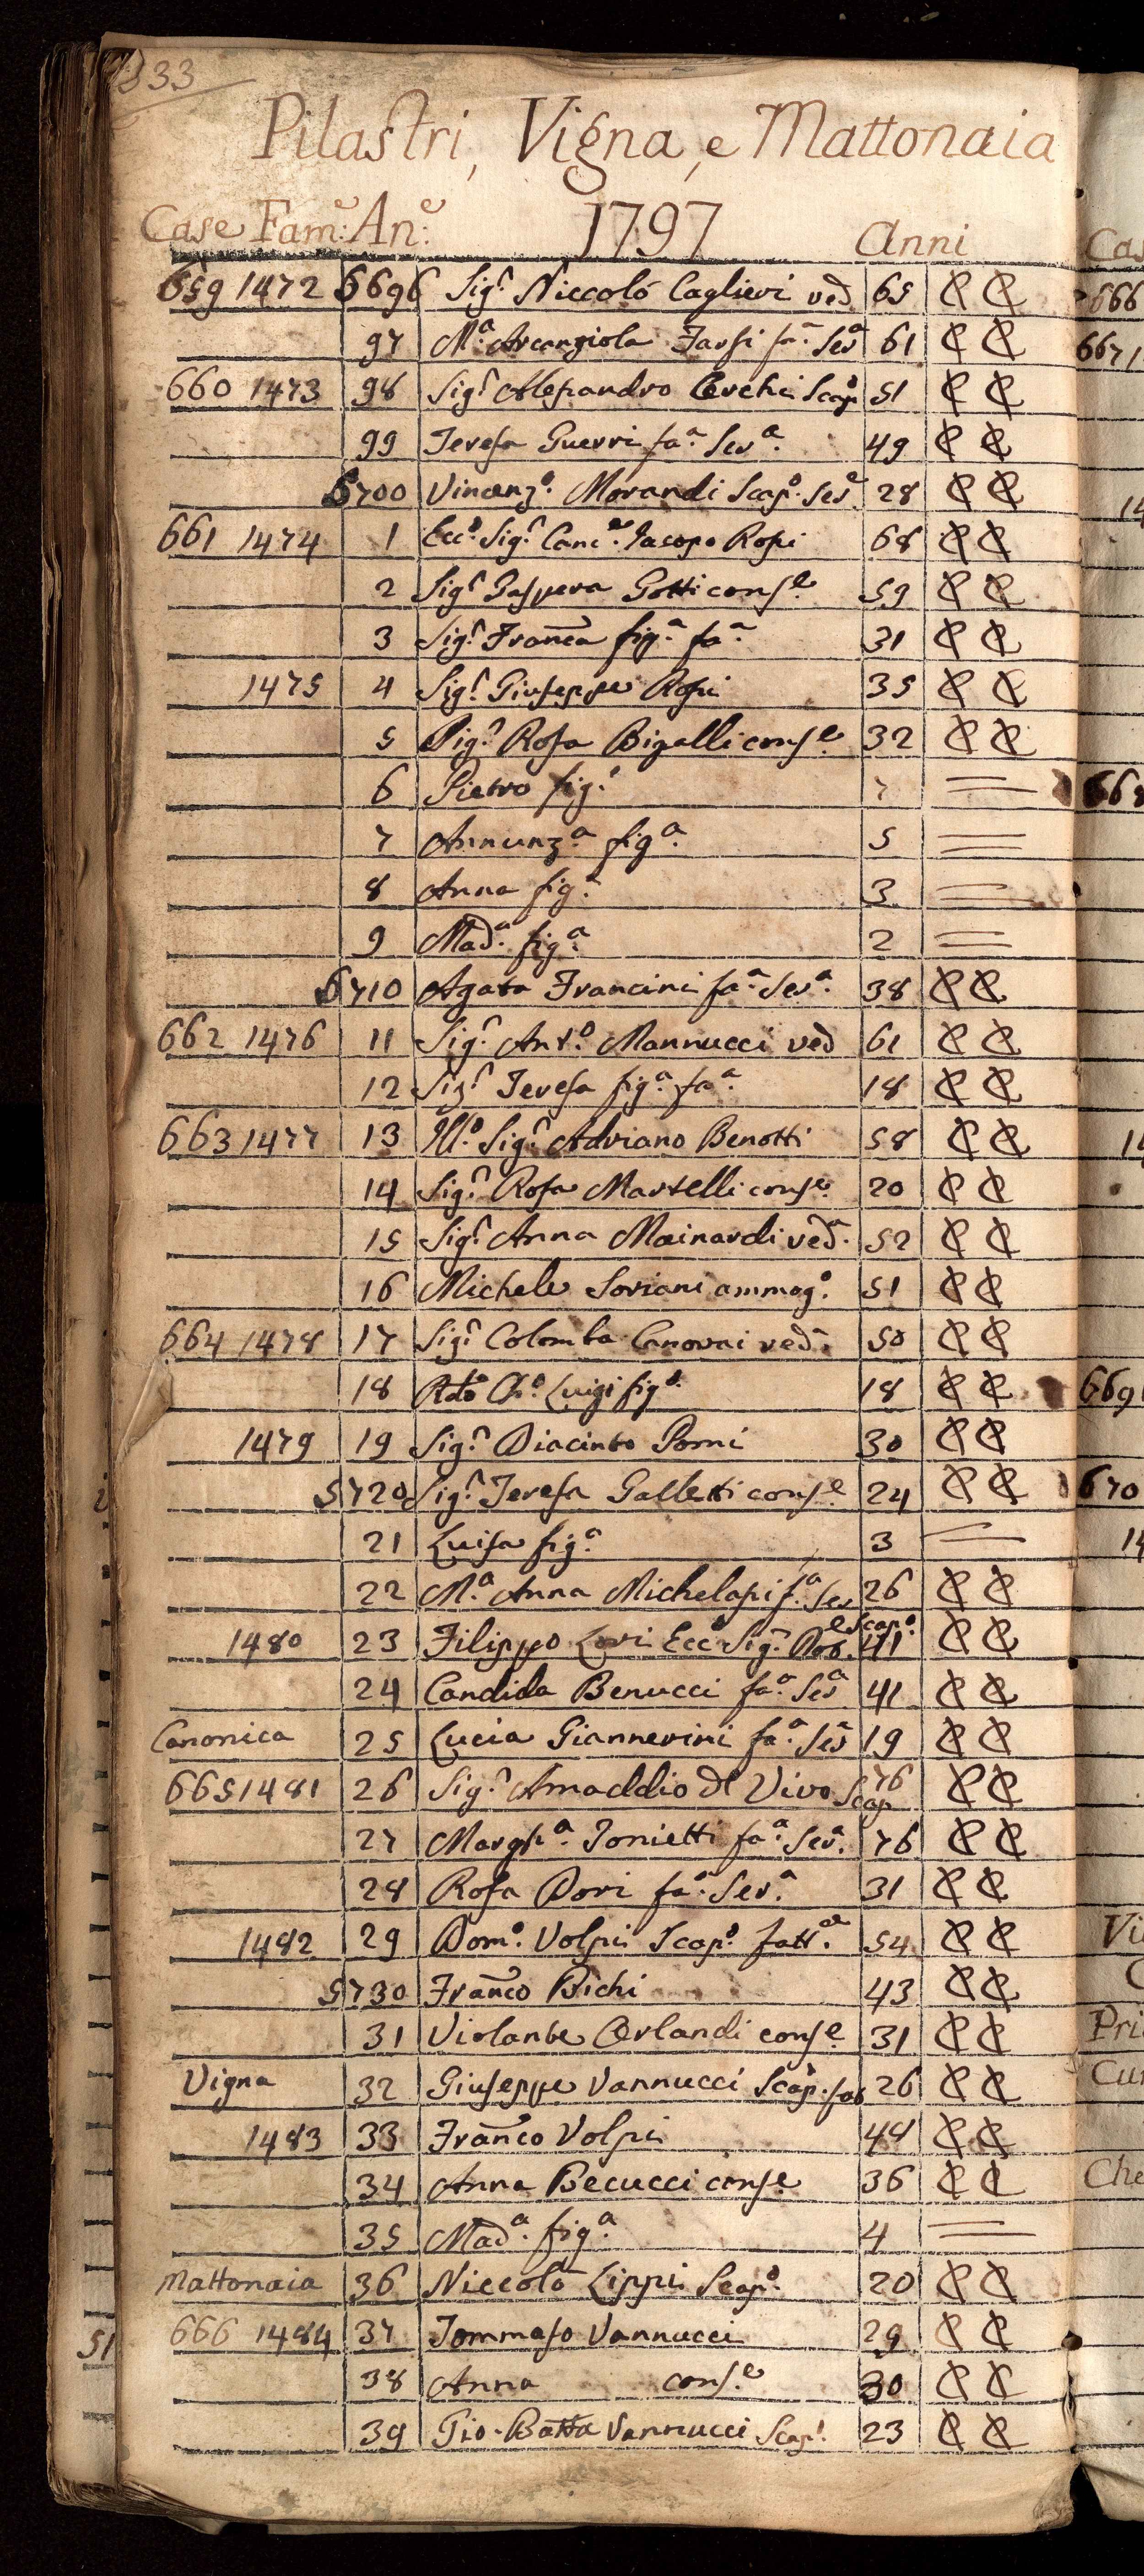 333
Pilastri, Vigna, e Mattonaia
Case Fam.e An.e 1797 Anni
659 1472 6696 Sig.r Niccoló Caglieri ved 65
97 M.a Arcangiola Farsi fa.a Ser.a 61
660 1473 98 Sig.r Alessandro Cerchi Scap.o 51
99 Teresa Guerri fa.a Ser.a 49
6700 Vincenz.o Morandi Scap.o Ser.e 28
661 1474 1 Ecc.o Sig.r Canc.e Iacopo Rossi 68
2 Sig.r Gaspera Gotti cons.e 59
3 Sig.r Franca fig.a fa.a 31
1475 4 Sig.r Giuseppe Rossi 35
5 Sig.r Rosa Bigalli cons.e 32
6 Pietro fig.o 7
7 Annunz.a fig.a 5
8 Anna fig.a 3
9 Mad.a fig.a 2
6710 Agata Francini fa.a Ser.a 38
662 1476 11 Sig.r Ant.o Mannucci ved 61
12 Sig.r Teresa fig.a fa.a 18
663 1477 13 Ill.o Sig.r Adriano Benotti 58
14 Sig.r Rosa Martelli cons.e 20
15 Sig.r Anna Mainardi ved.a 52
16 Michele Soriani ammog.o 51
664 1478 17 Sig.r Colomba Canovai ved.a 50
18 Rdo Ch.o Luigi fig.o 18
1479 19 Sig.r Diacinto Pomi 30
5720 Sig.r Teresa Galletti cons.e 24
21 Luisa fig.a 3
22 M.a Anna Michelassi f.a Ser 26
1480 23 Filippo Lori Ecc Sig.r Dot. e Scap.o 41
24 Candida Benucci fa.a Ser.a 41
Canonica 25 Lucia Giannerini fa.a Ser.a 19
665 1481 26 Sig.r Amaddio del Vivo Scap 76
27 Margh.a Tonietti fa.a Ser.a 76
28 Rosa Dori fa.a Ser.a 31
1482 29 Dom.o Volpi Scap.o fatt.e 54
5730 Franco Bichi 43
31 Violante Orlandi cons.e 31
Vigna 32 Giuseppe Vannucci Scap. fat 26
1483 33 Franco Volpi 48
34 Anna Becucci cons.e 36
35 Mad.a fig.a 4
Mattonaia 36 Niccolo Lippi Scap.o 20
666 1484 37 Tommaso Vannucci 29
38 Anna cons.e 30
39 Gio. Batta Vannucci Scap.o 23